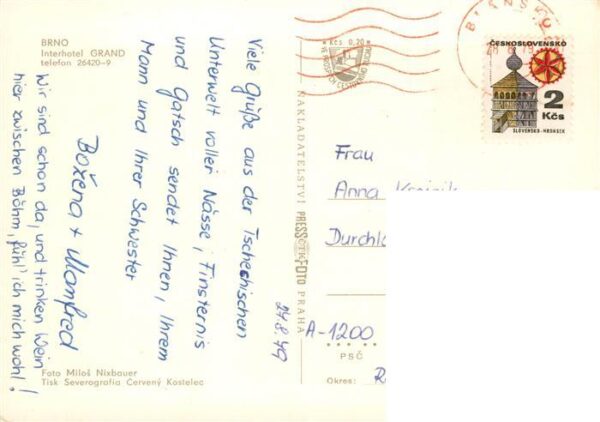 BRNO
Interhotel GRAND
telefon 26420-9
Viele Grüße aus der Tschechischen
Unterwelt voller Nässe, Finsternis
und Gatsch sendet Ihnen, Ihrem
Mann und Ihrer Schwester
Božena + Manfred
Wir sind schon da, und trinken Wein
hier zwischen Böhm, fühl' ich mich wohl!
Foto Miloš Nixbauer
Tisk Severografia Červený Kostelec
24.8.79
NAKLADATELSTVÍ PRESSFOTO PRAHA
Kčs 0,20
BLANSKO
ČESKOSLOVENSKO
2
Kčs
SLOVENSKO-HRONSEK
Frau
Anna
A-1200
PSČ
Okres: